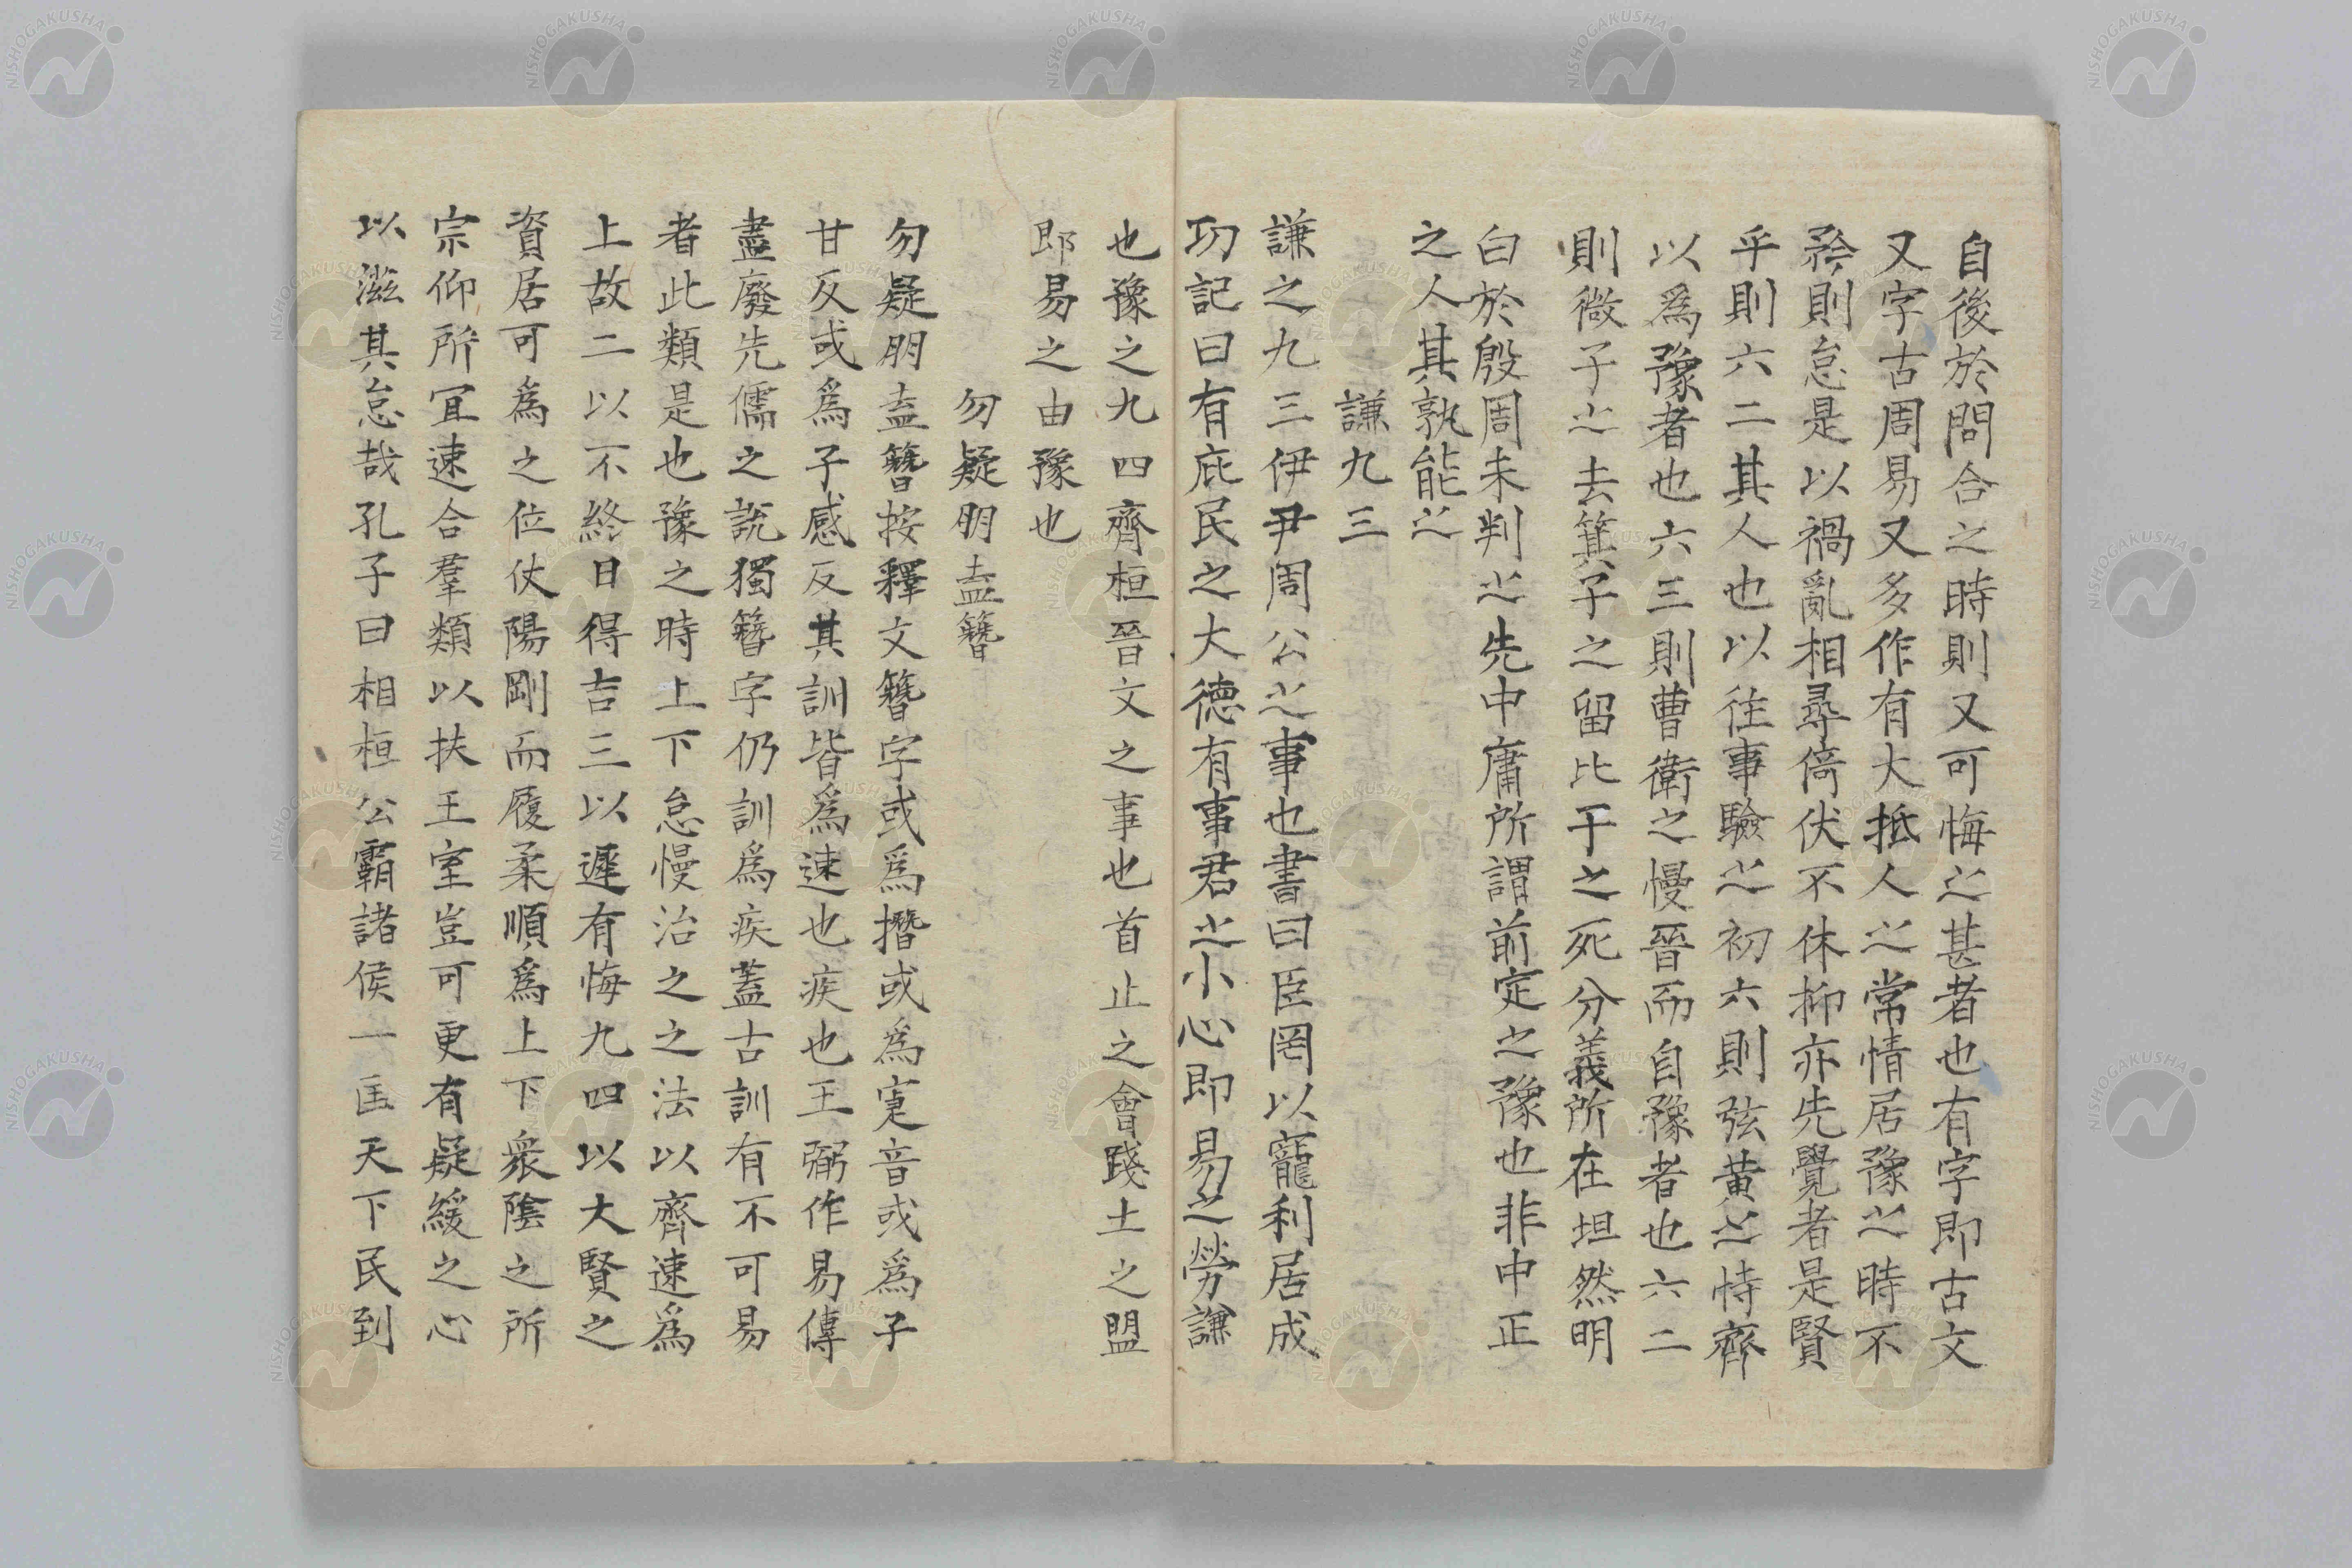 自後於問合之時則又可悔之甚者也有字即古文
又字古周易又多作有大抵人之常情居豫之時不
矜則怠是以禍亂相尋倚伏不休抑亦先覺者是賢
乎則六二其人也以往事驗之初六則弦黄之恃齊
以爲豫者也六三則曹衛之慢晉而自豫者也六二
則微子之去箕子之留比干之死分義所在坦然明
白於殷周未判之先中庸所謂前定之豫也非中正
之人其孰能之
謙九三
謙之九三伊尹周公之事也書曰臣罔以寵利居成
功記曰有庇民之大德有事君之小心即易之勞謙
也豫之九四齊桓晉文之事也首止之會踐土之盟
即易之由豫也
勿疑朋盍簪
勿疑朋盍簪按釋文簪字或爲撍或爲寁音或爲子
甘反或爲子感反其訓皆爲速也疾也王弼作易傳
盡廢先儒之說獨簪字仍訓爲疾蓋古訓有不可易
者此類是也豫之時上下怠慢治之之法以齊速爲
上故二以不終日得吉三以遲有悔九四以大賢之
資居可爲之位仗陽剛而履柔順爲上下衆陰之所
宗仰所宜速合羣類以扶王室豈可更有疑緩之心
以滋其怠哉孔子曰相桓公霸諸侯一匡天下民到
NISHOGAKUSHA